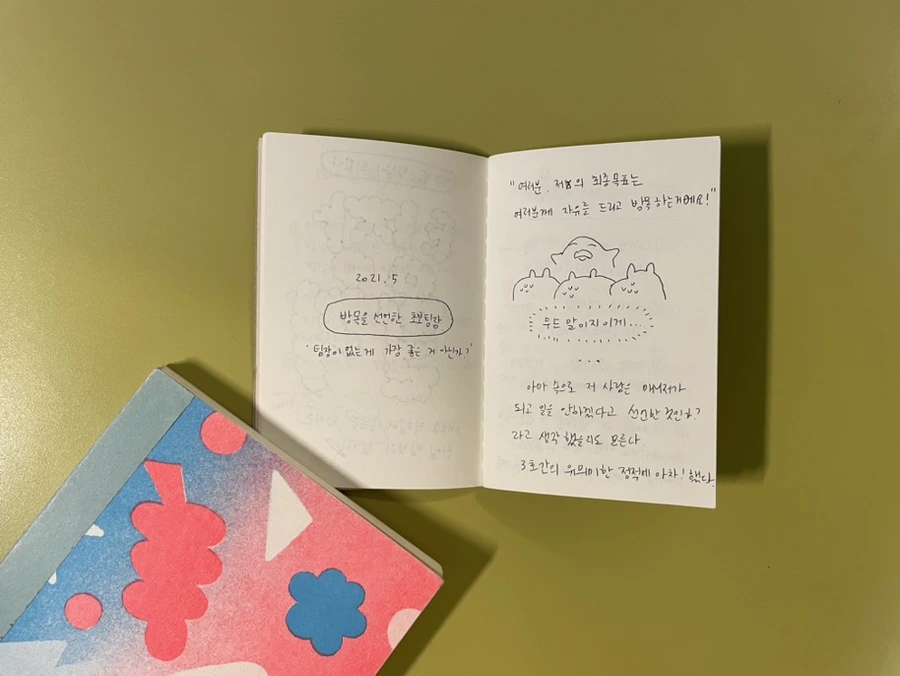 2021.5
방목을 선언한 초보팀장
'팀장이 없는게 가장 좋은 거 아닌가?'
"여러분, 저의 최종목표는
여러분께 자유를 드리고 방목하는거예요!"
무드 말이지 이게...
...
아마 속으로 저 사람은 매니저가
되고 일을 안하겠다고 선언한 것인가?
라고 생각했을지도 모른다
3초간의 유의미한 정적에 아차! 했다.